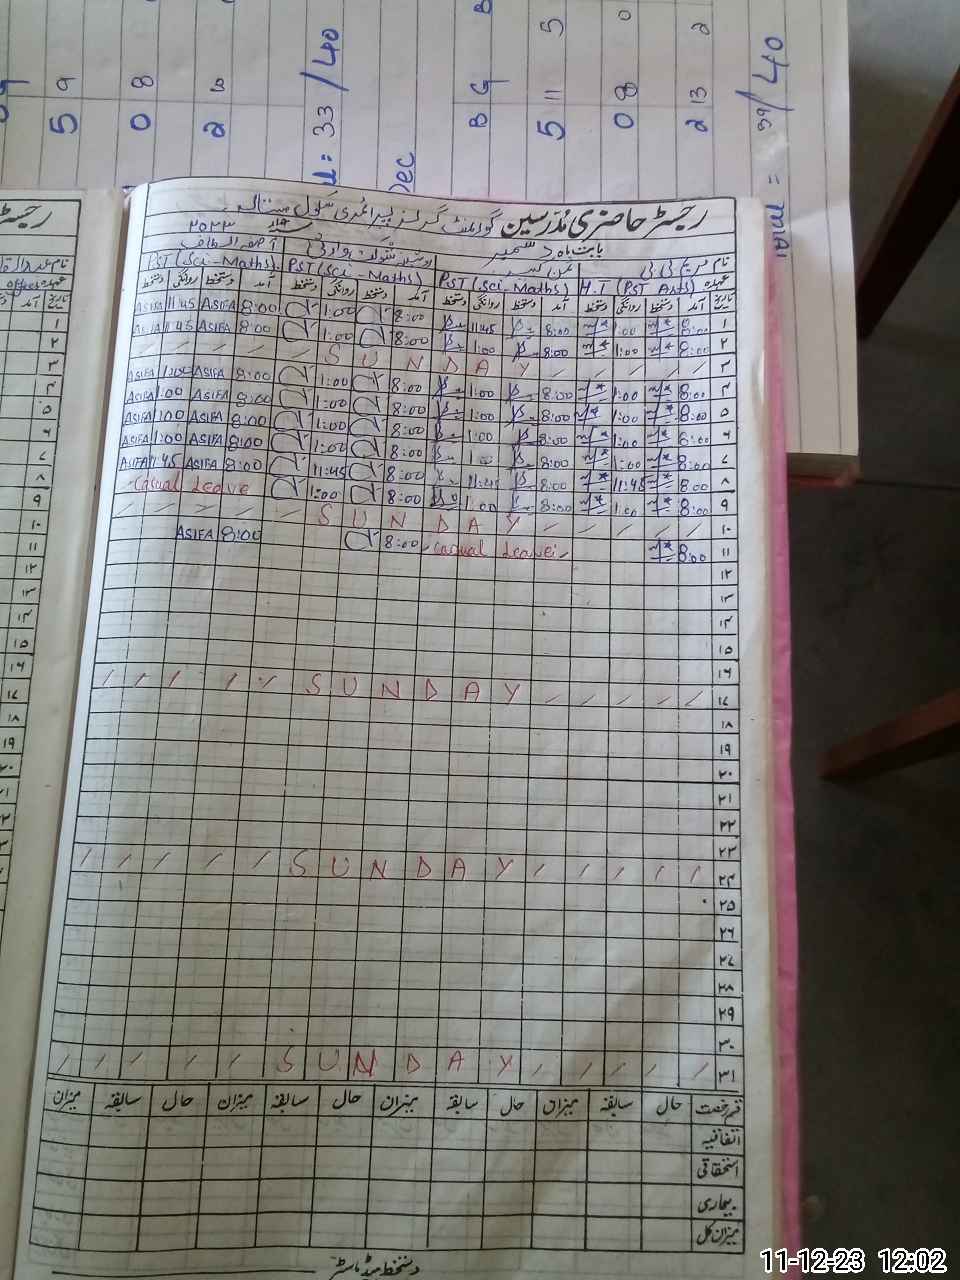 B G B
59 5 11 5
08 08 0
2 2 13 2
= 33 / 40
39/40
Dec
رجسٹر حاضری مدرسین گورنمنٹ گرلز پرائمری سکول
بابت ماہ دسمبر ۲۰۲۳
نام مریم بی بی
عہدہ H.T (PST Arts) PST (Sci-Maths) PST (Sci-Maths) PST (Sci-Maths)
تاریخ آمد دستخط روانگی دستخط آمد دستخط روانگی دستخط آمد دستخط روانگی دستخط آمد دستخط روانگی دستخط
۱ 8:00 1:00 8:00 11:45 8:00 1:00 8:00 ASIFA 11:45 ASIFA
۲ 8:00 1:00 8:00 1:00 8:00 1:00 8:00 ASIFA 11:45 ASIFA
۳ SUNDAY
۴ 8:00 1:00 8:00 1:00 8:00 1:00 8:00 ASIFA 1:00 ASIFA
۵ 8:00 1:00 8:00 1:00 8:00 1:00 8:00 ASIFA 1:00 ASIFA
۶ 8:00 1:00 8:00 1:00 8:00 1:00 8:00 ASIFA 1:00 ASIFA
۷ 8:00 1:00 8:00 1:00 8:00 1:00 8:00 ASIFA 1:00 ASIFA
۸ 8:00 11:45 8:00 11:45 8:00 11:45 8:00 ASIFA 11:45 ASIFA
۹ 8:00 1:00 8:00 1:00 8:00 1:00 Casual Leave
۱۰ SUNDAY
۱۱ 8:00 Casual Leave 8:00 8:00 ASIFA
۱۲
۱۳
۱۴
۱۵
۱۶
۱۷ SUNDAY
۱۸
۱۹
۲۰
۲۱
۲۲
۲۳
۲۴ SUNDAY
۲۵
۲۶
۲۷
۲۸
۲۹
۳۰
۳۱ SUNDAY
قر خصت حال سابقہ میزان حال سابقہ میزان حال سابقہ میزان حال سابقہ میزان
اتفاقیہ
استحقاقی
بیماری
میزان کل
دستخط ہیڈ ماسٹر
11-12-23 12:02